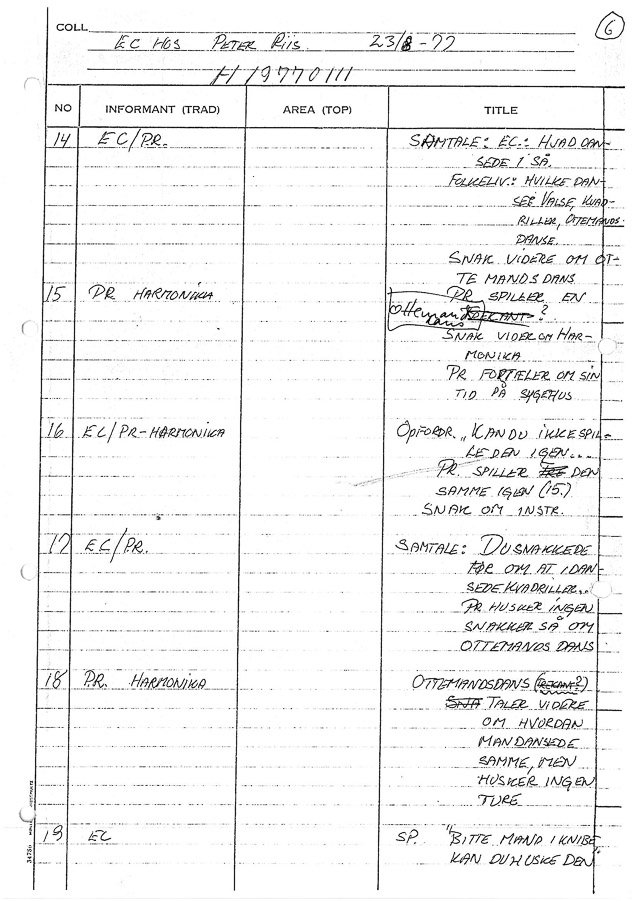 6
COLL EC HOS PETER RIIS. 23/8-77
H 19770111
NO INFORMANT (TRAD) AREA (TOP) TITLE
14 EC/P.R. SAMTALE: EC.: HVAD DAN-
SEDE I SÅ.
FOLKELIV.: HVILKE DAN-
SE? VALSE, KVAD-
RILLER, OTTEMANDS-
DANSE.
SNAK VIDERE OM OT-
TEMANDSDANS
15 PR HARMONIKA PR SPILLER EN
Ottemands TREKANT ?
dans
SNAK VIDER OM HAR-
MONIKA
PR FORTÆLER OM SIN
TID PÅ SYGEHUS
16 EC/PR-HARMONIKA OPFORDR. "KAN DU IKKE SPIL-
LE DEN IGEN...
PR. SPILLER DEN
SAMME IGEN (15.)
SNAK OM INSTR.
17 EC/PR. SAMTALE: DU SNAKKEDE
FØR OM AT I DAN-
SEDE KVADRILLER..
PR HUSKER INGEN
SNAKKER SÅ OM
OTTEMANDS DANS
18 P.R. HARMONIKA OTTEMANDSDANS (TREKANT?)
SNA TALER VIDERE
OM HVORDAN
MAN DANSEDE
SAMME, MEN
HUSKER INGEN
TURE
19 EC SP. "BITTE MAND I KNIBE,
KAN DU HUSKE DEN"